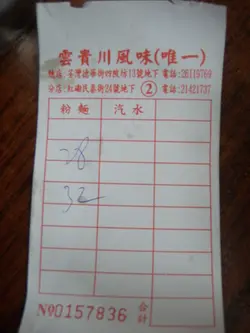 雲貴川風味(唯一)
荃灣德華街四陂坊 號地下 電話:26119769
分店:紅磡民泰街24號地下 ② 電話:21421737
粉麵 汽水
28
32
№0157836 合計